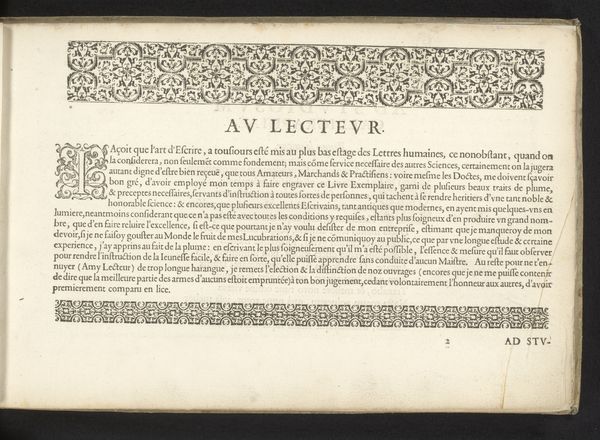 AV LECTEVR.
IAçoit que l'art d'Escrire, a tousiours esté mis au plus bas estage des Lettres humaines, ce nonobstant, quand on
la considerera, non seulemẽt comme fondement; mais cõme service necessaire des autres Sciences, certainement on la jugera
autant digne d'estre bien reçeuë, que tous Amateurs, Marchands & Practisiens: voire mesme les Doctes, me doivent sçavoir
bon gré, d'avoir employé mon temps à faire engraver ce Livre Exemplaire, garni de plusieurs beaux traits de plume,
& preceptes necessaires, servants d'instruction à toutes sortes de personnes, qui tachent à se rendre heritiers d'vne tant noble &
honorable science: & encores, que plusieurs excellents Escrivains, tant antiques que modernes, en ayent mis quelques-vns en
lumiere, neantmoins considerant que ce n'a pas esté avec toutes les conditions y requises, estants plus soigneux d'en produire vn grand nom-
bre, que d'en faire reluire l'excellence, si est-ce que pourtant je n'ay voulu desister de mon entreprise, estimant que je manqueroy de mon
devoir, si je ne faisoy gouster au Monde le fruit de mes Lucubrations, & si je ne cõmuniquoy au public, ce que par vne longue estude & certaine
experience, j'ay apprins au fait de la plume: en escrivant le plus soigneusement qu'il m'a esté possible, l'essence & mesure qu'il faut observer
pour rendre l'instruction de la Ieunesse facile, & faire en sorte, qu'elle puisse apprendre sans conduite d'aucun Maistre. Au reste pour ne t'en-
nuyer (Amy Lecteur) de trop longue harangue, je remets l'election & la distinction de noz ouvrages (encores que je ne me puisse contenir
de dire que la meilleure partie des armes d'aucuns estoit empruntée) à ton bon jugement, cedant volontairement l'honneur aux autres, d'avoir
premierement comparu en lice.
2 AD STV-